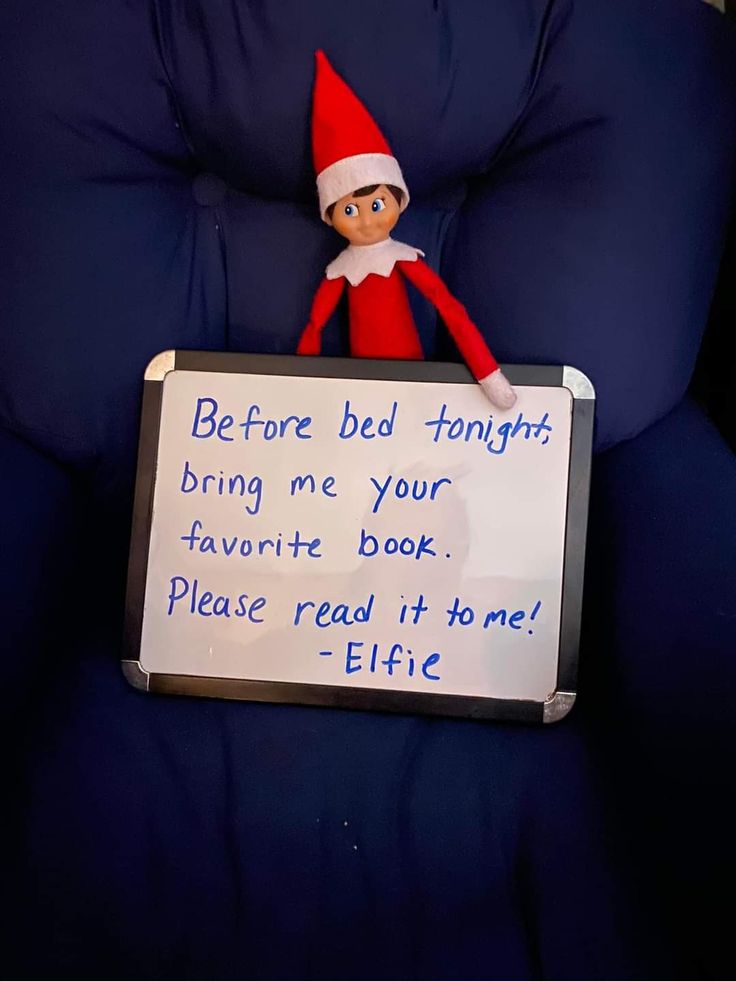 Before bed tonight,
bring me your
favorite book.
Please read it to me!
- Elfie